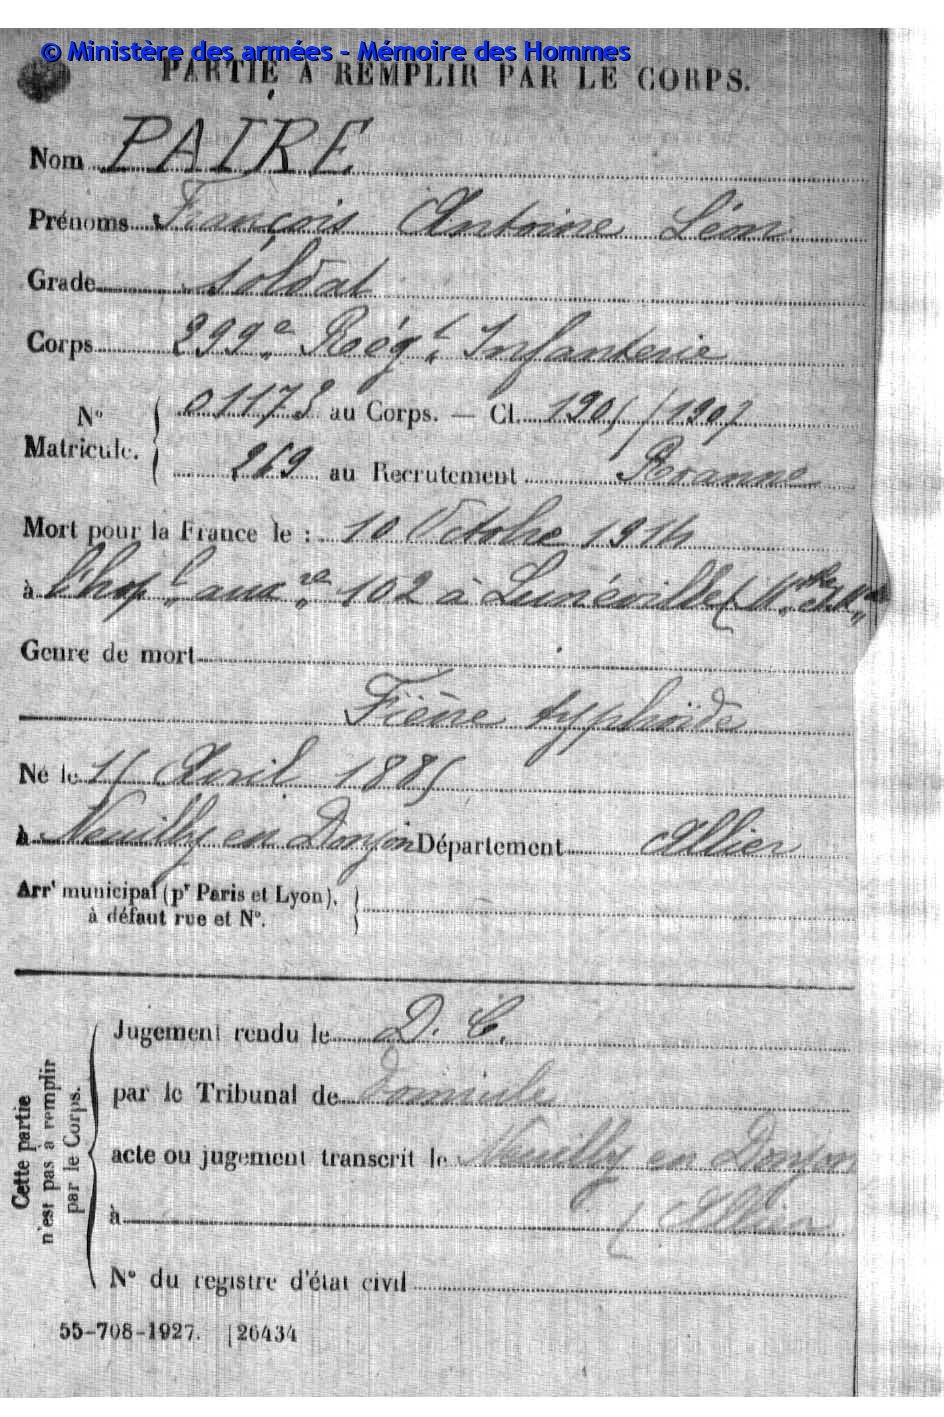 © Ministère des armées - Mémoire des Hommes
PARTIE À REMPLIR PAR LE CORPS.
Nom PAIRE
Prénoms François Antoine Léon
Grade soldat
Corps 299e Régt Infanterie
N° Matricule. 01173 au Corps. — Cl. 1905/1907
269 au Recrutement Roanne
Mort pour la France le : 10 Octobre 1914
à l'hopl auxre 102 à Lunéville (Mthe
Genre de mort
Fièvre typhoïde
Né le 11 Avril 1885
à Neuilly en Donjon Département Allier
Arrt municipal (pr Paris et Lyon),
à défaut rue et N°.
Cette partie
n'est pas à remplir
par le Corps.
Jugement rendu le D. C.
par le Tribunal de Domicile
acte ou jugement transcrit le Neuilly en Donjon
à (Allier
N° du registre d'état civil
55-708-1927. [26434